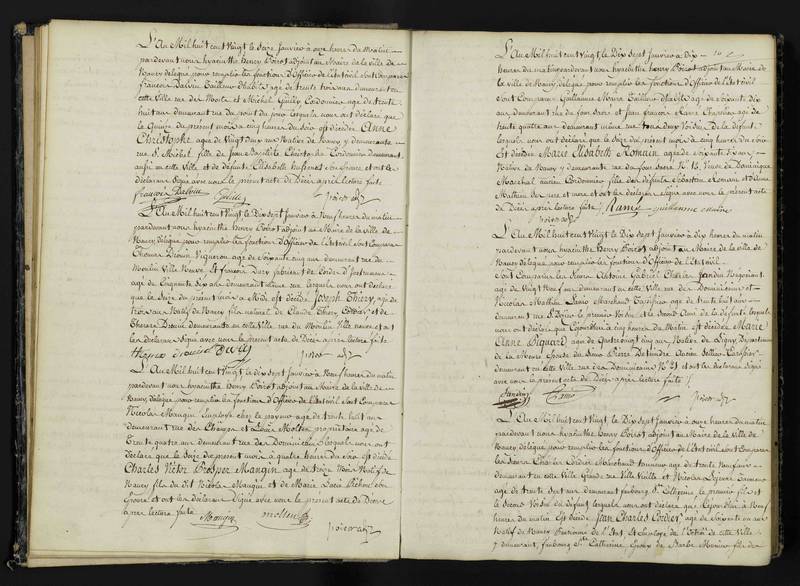 L'An Mil huit cent Vingt le Seize Janvier à onze heures du Matin
pardevant nous hyacinthe Henry Poirot adjoint au Maire de la ville de
Nancy délégué pour remplir les fonctions d'Officier de l'état civil sont Comparus
François agé de trente trois ans demeurant en
cette Ville rue et Michel Cordonnier agé de trente
huit ans demeurant rue du lesquels nous ont déclaré que
le Quinze du présent mois à cinq heures du Soir est décédée Anne
Christophe agée de Vingt deux ans Native de Nancy y demeurante
rue St. Michel fille de Jean Christophe Cordonnier demeurant
aussi en cette Ville et de défunte Elisabeth Son Epouse et ont les
déclarans Signé avec nous le présent acte de Décès après lecture faite
Poirot adjt
L'An Mil huit cent Vingt le Dix Sept Janvier à Neuf heures du matin
pardevant nous hyacinthe Henry Poirot adjoint au Maire de la ville de
Nancy délégué pour remplir les fonctions d'Officier de l'état civil sont Comparus
Thomas Drouin Vigneron agé de Soixante cinq ans demeurant rue du
Moulin Ville Neuve et
agé de Cinquante Six ans demeurant même rue lesquels nous ont déclaré
que le Seize du présent mois à Midi est décédé Joseph Thiery, agé de
trois ans Natif de Nancy fils naturel de Claude Thiery et de
Thérèse Drouin demeurante en cette Ville rue du Moulin Ville neuve et ont
les déclarans Signé avec nous le présent acte de Décès après lecture faite
thomas drouin Poirot adjt
L'An Mil huit cent Vingt le dix Sept Janvier à Neuf heures du matin
pardevant nous hyacinthe Henry Poirot adjoint au Maire de la ville de
Nancy délégué pour remplir les fonctions d'Officier de l'état civil sont Comparus
Nicolas Mangin Employé chez le payeur agé de trente huit ans
demeurant rue des et Mollen propriétaire agé de
Trente quatre ans demeurant rue des Dominicains lesquels nous ont
déclaré que le Seize du présent mois à quatre heures du Soir est décédé
Charles Victor Prosper Mangin agé de treize Mois Natif de
Nancy fils du dit Nicolas Mangin et de Marie Lucie son
Epouse et ont les déclarans Signé avec nous le présent acte de Décès
après lecture faite
Mangin mollen Poirot adjt
L'An Mil huit cent Vingt, le Dix Sept Janvier à Dix
heures du matin pardevant nous hyacinthe Henry Poirot adjoint au Maire de
la ville de Nancy, délégué pour remplir les fonctions d'Officier de l'état civil
sont Comparus Guillaume agé de Soixante dix
ans demeurant rue du et Jean François agé de
trente quatre ans demeurant même rue tous deux Voisins de la défunte
lesquels nous ont déclaré que le Seize du présent mois à cinq heures du soir
Est décédée Marie Elisabeth Romain agée de soixante dix ans
Native de Nancy y demeurante rue du N°. 13, Veuve de Dominique
Marechal ancien Cordonnier fille des défunts Sébastien Romain et d'Anne
Mathieu et ont les déclarans Signé avec nous le présent acte
de Décès après lecture faite
Poirot adjt
L'An Mil huit cent Vingt, le Dix Sept Janvier à dix heures du matin
pardevant nous hyacinthe Henry Poirot adjoint au Maire de la ville de
Nancy délégué pour remplir les fonctions d'Officier de l'état civil
sont Comparus les Sieurs Antoine Gabriel Charles Jandin Négociant,
agé de Vingt Neuf ans demeurant en cette Ville rue des Dominicains et
Nicolas Mathieu Marchand Tapissier agé de trente huit ans
demeurant rue St. Dizier le premier Voisin et le Second Ami de la défunte lesquels
nous ont déclaré que Cejourd'hui à Cinq heures du Matin est décédée Marie
Anne Piquard agée de Quatre vingt Cinq ans, Native de Ligny Département
de la Meuse Epouse du Sieur Pierre ancien Sellier Carossier,
demeurant en cette Ville rue des Dominicains N°. 21 et ont les déclarans Signé
avec nous le présent acte de Décès après lecture faite
Jandin Poirot adjt
L'An Mil huit cent Vingt, le Dix Sept Janvier à onze heures du matin
pardevant nous hyacinthe Henry Poirot adjoint au Maire de la Ville de
Nancy, délégué pour remplir les fonctions d'Officier de l'état civil sont Comparus
les Sieurs Charles Cordier Marchand tanneur agé de trente Neuf ans
demeurant en cette Ville Grande rue Ville Vieille et Nicolas
agé de trente sept ans demeurant faubourg Ste. Catherine, le premier fils et
le Second Voisin du défunt, lesquels nous ont déclaré que Cejourd'hui à Neuf
heures du matin Est décédé Jean Charles Cordier agé de Soixante ans
Natif de Nancy Pensionné de l'Etat, et Employé de l'Octroi de cette Ville
y demeurant, faubourg Ste. Catherine, Epoux de Barbe fils de